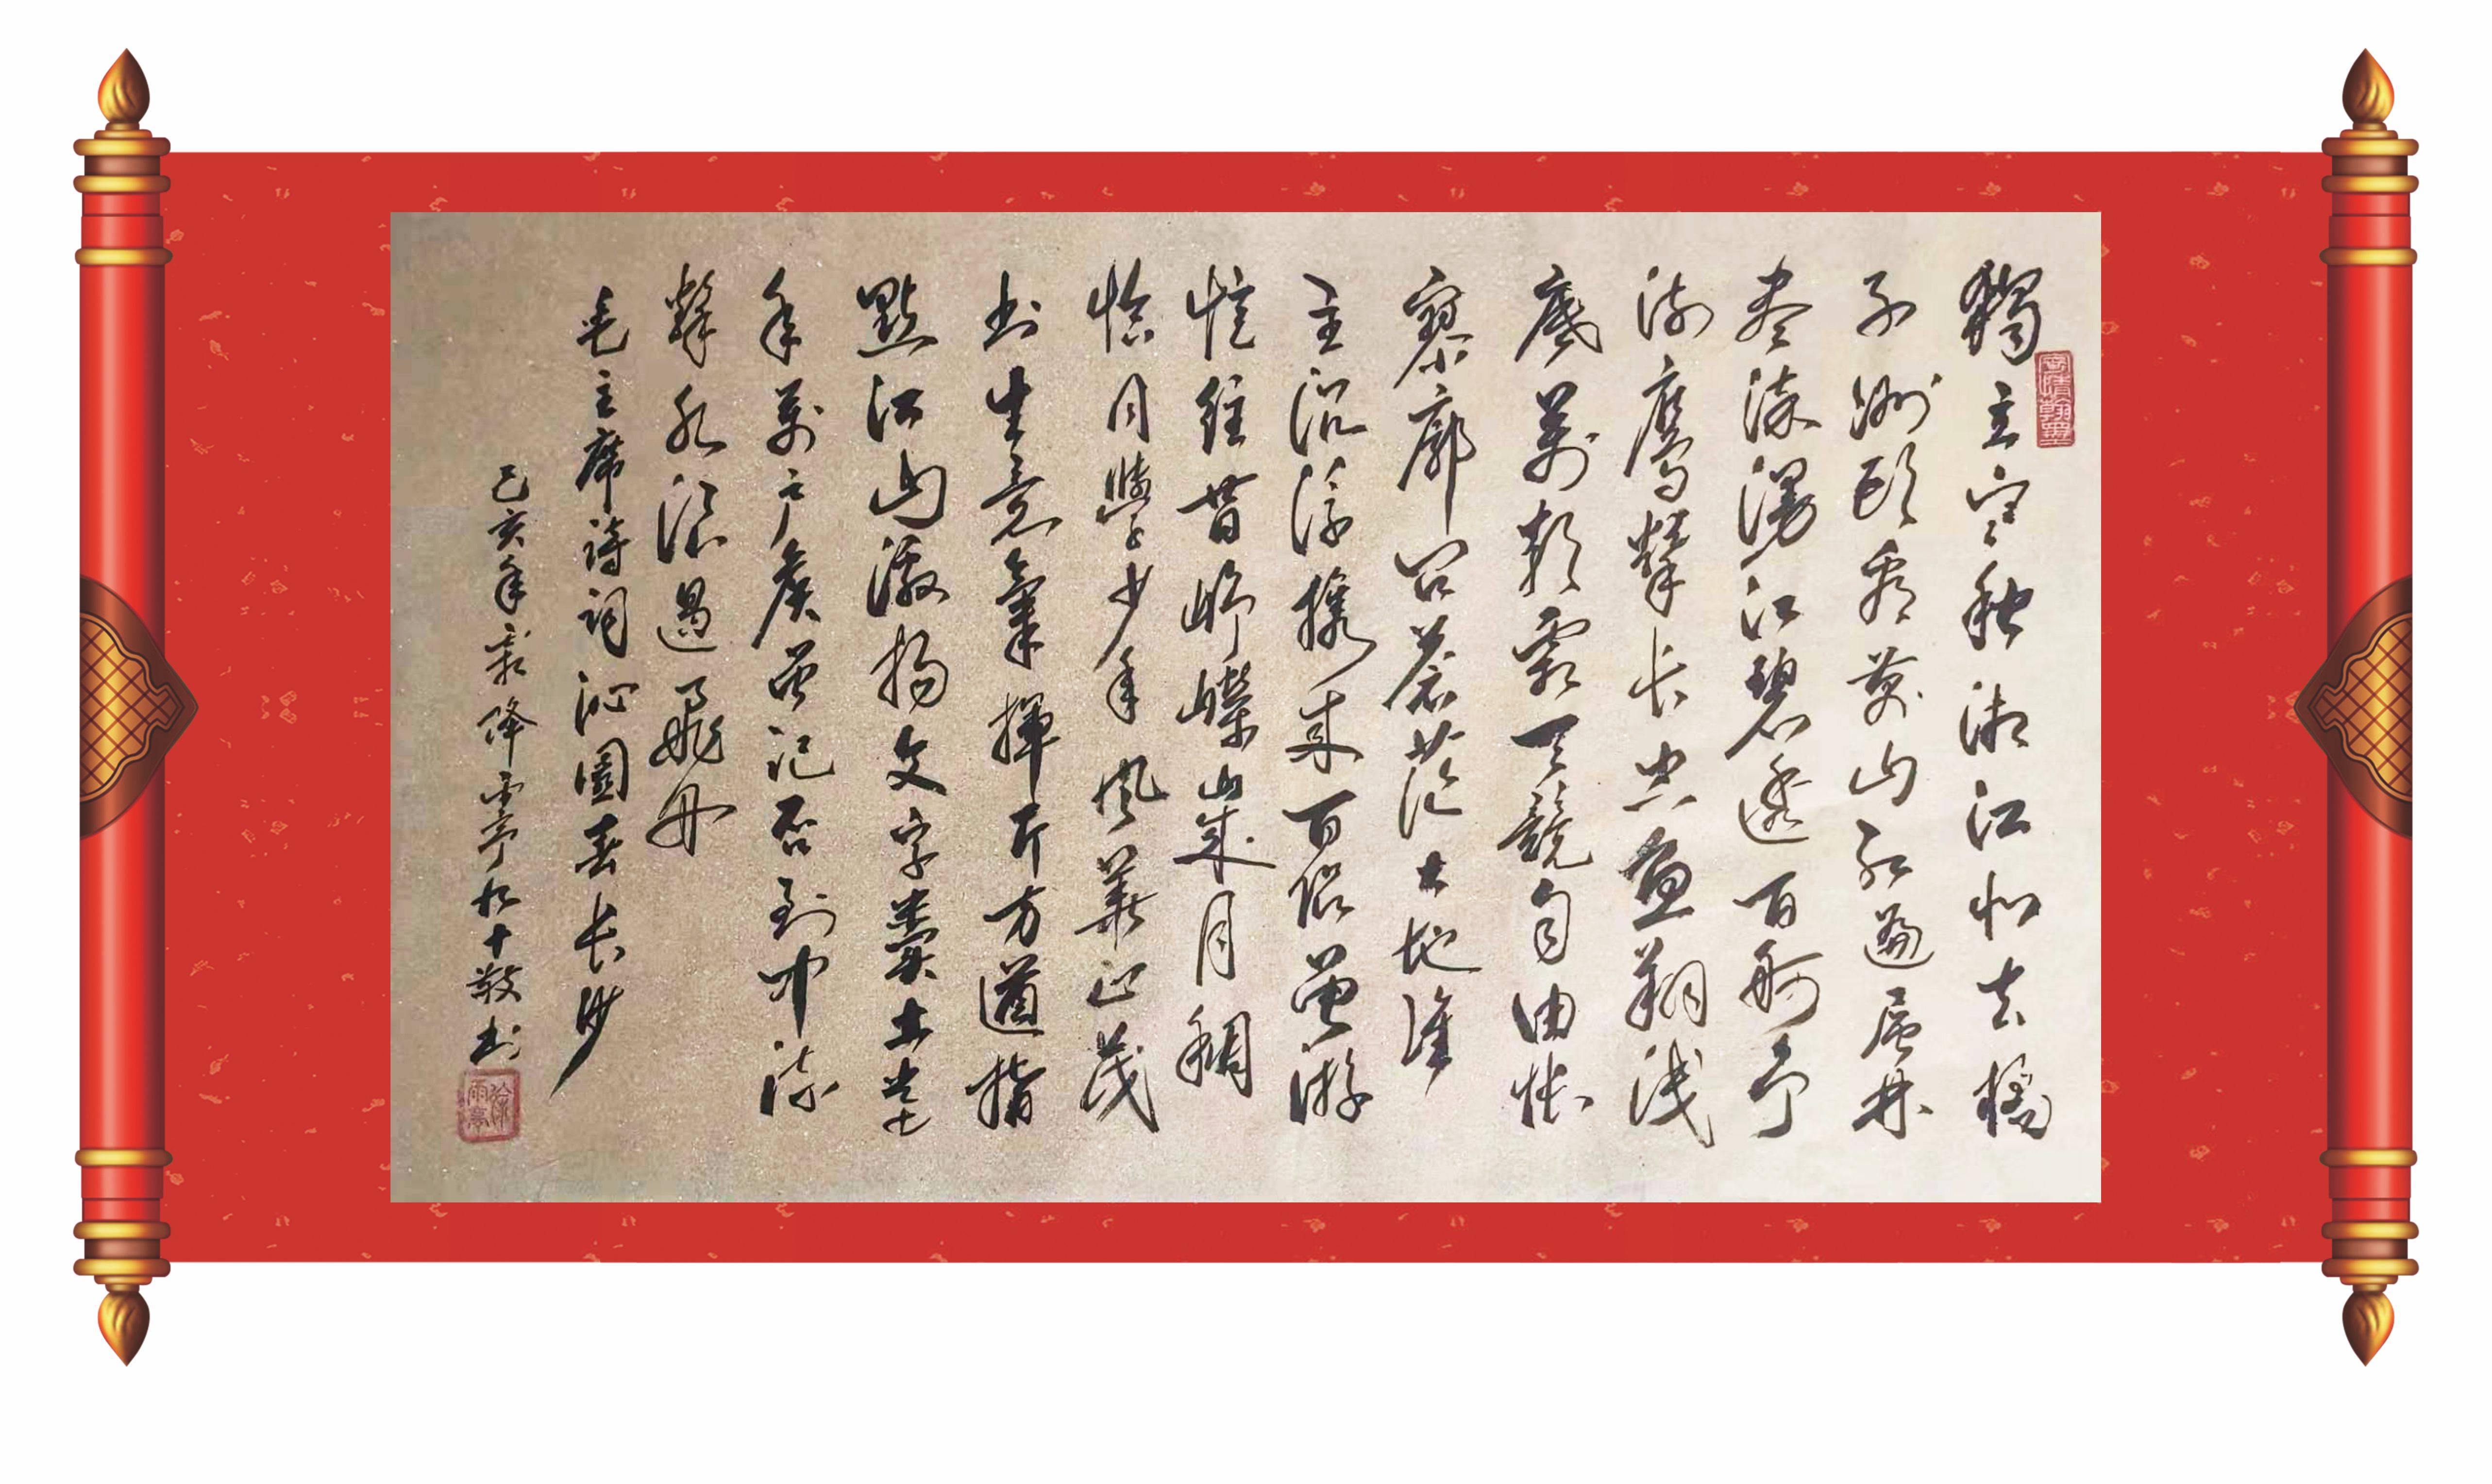 寄情翰墨
獨立寒秋湘江北去橘
子洲頭看萬山紅遍層林
盡染漫江碧透百舸爭
流鷹擊長空魚翔淺
底萬類霜天競自由悵
寥廓問蒼茫大地誰
主沉浮攜來百侣曾游
憶往昔崢嶸歲月稠
恰同學少年風華正茂
書生意氣揮斥方遒指
點江山激揚文字糞土當
年萬户侯曾記否到中流
擊水浪遏飛舟
毛主席詩詞沁園春長沙
己亥年霜降雨亭九十敬書
徐雨亭